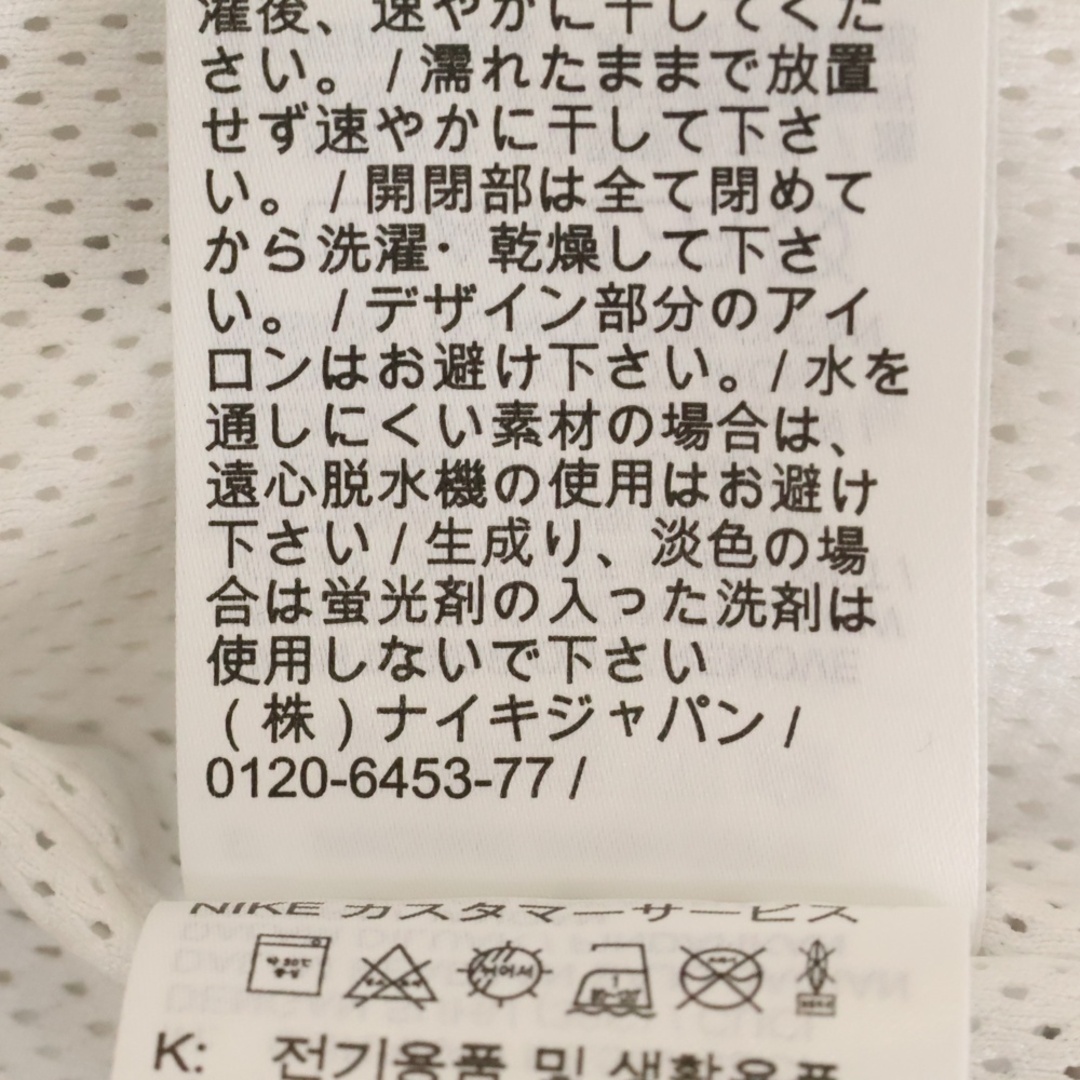 濯後、速やかに干してくだ
さい。 / 濡れたままで放置
せず速やかに干して下さ
い。 / 開閉部は全て閉めて
から洗濯・乾燥して下さ
い。 / デザイン部分のアイ
ロンはお避け下さい。/ 水を
通しにくい素材の場合は、
遠心脱水機の使用はお避け
下さい / 生成り、淡色の場
合は蛍光剤の入った洗剤は
使用しないで下さい
(株)ナイキジャパン /
0120-6453-77 /
NIKE カスタマーサービス
K: 전기용품 및 생활용품